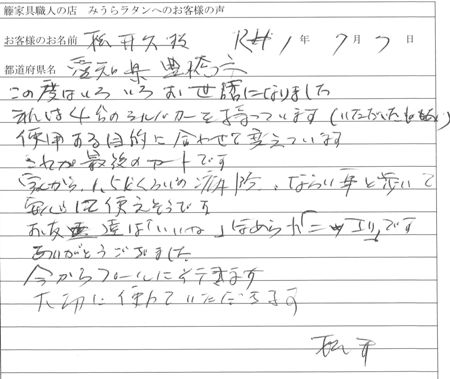 籐家具職人の店 みうらラタンへのお客様の声
お客様のお名前 松井 R元年7月 日
都道府県名 愛知県豊橋市
この度はいろいろお世話になりました
私は4台のシルバーカーを持っています(いただいた
使用ある目的に合わせて変えています
これが最後のカートです
家から1.5kくらいの
安心に使えそうです
お友達は「いいね」ほめられニッコリです
ありがとうございました
今からプールに行きます
大切に使わせていただきます
松井